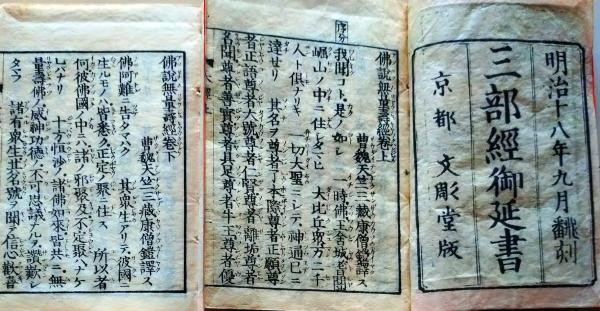 明治十八年九月飜刻
三部經御延書
京都 文彫堂版
序分
佛說無量壽經卷上
曹魏天竺三藏康僧鎧譯ス
我聞コト是ノ如シ 一時佛王舍城耆闍
崛山ノ中ニ住シタマヒ 大比丘衆万二千
人ト俱ナリキ 一切大聖ニシテ神通已ニ
達セリ 其名ヲ尊者了本際尊者正願尊
者正語尊者大號尊者仁賢尊者離垢尊者
名聞尊者善實尊者具足尊者牛王尊者優
佛說無量壽經卷下
曹魏天竺三藏康僧鎧譯ス
佛阿難ニ告タマハク 其衆生アリテ彼國ニ
生ルモノハ皆悉ク正定ノ聚ニ住ス 所以者
何彼佛國ノ中ニハ諸ノ邪聚及不定聚ナケ
レハナリ 十方恒沙ノ諸佛如來皆共ニ無
量壽佛ノ威神功德ノ不可思議ナルヲ讚歎シ
タマフ 諸有衆生其名號ヲ聞テ信心歡喜